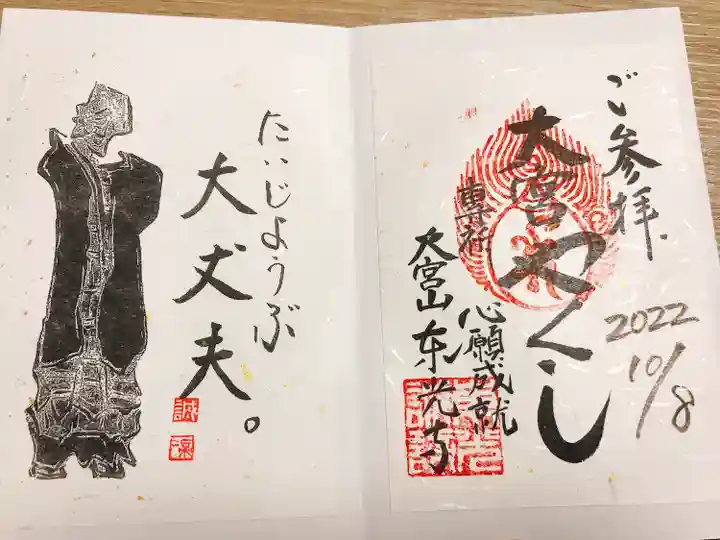 たいじようぶ
大丈夫。
ご参拝
2022
10/8
大宮やくし
専祈
心願成就
大宮山東光寺